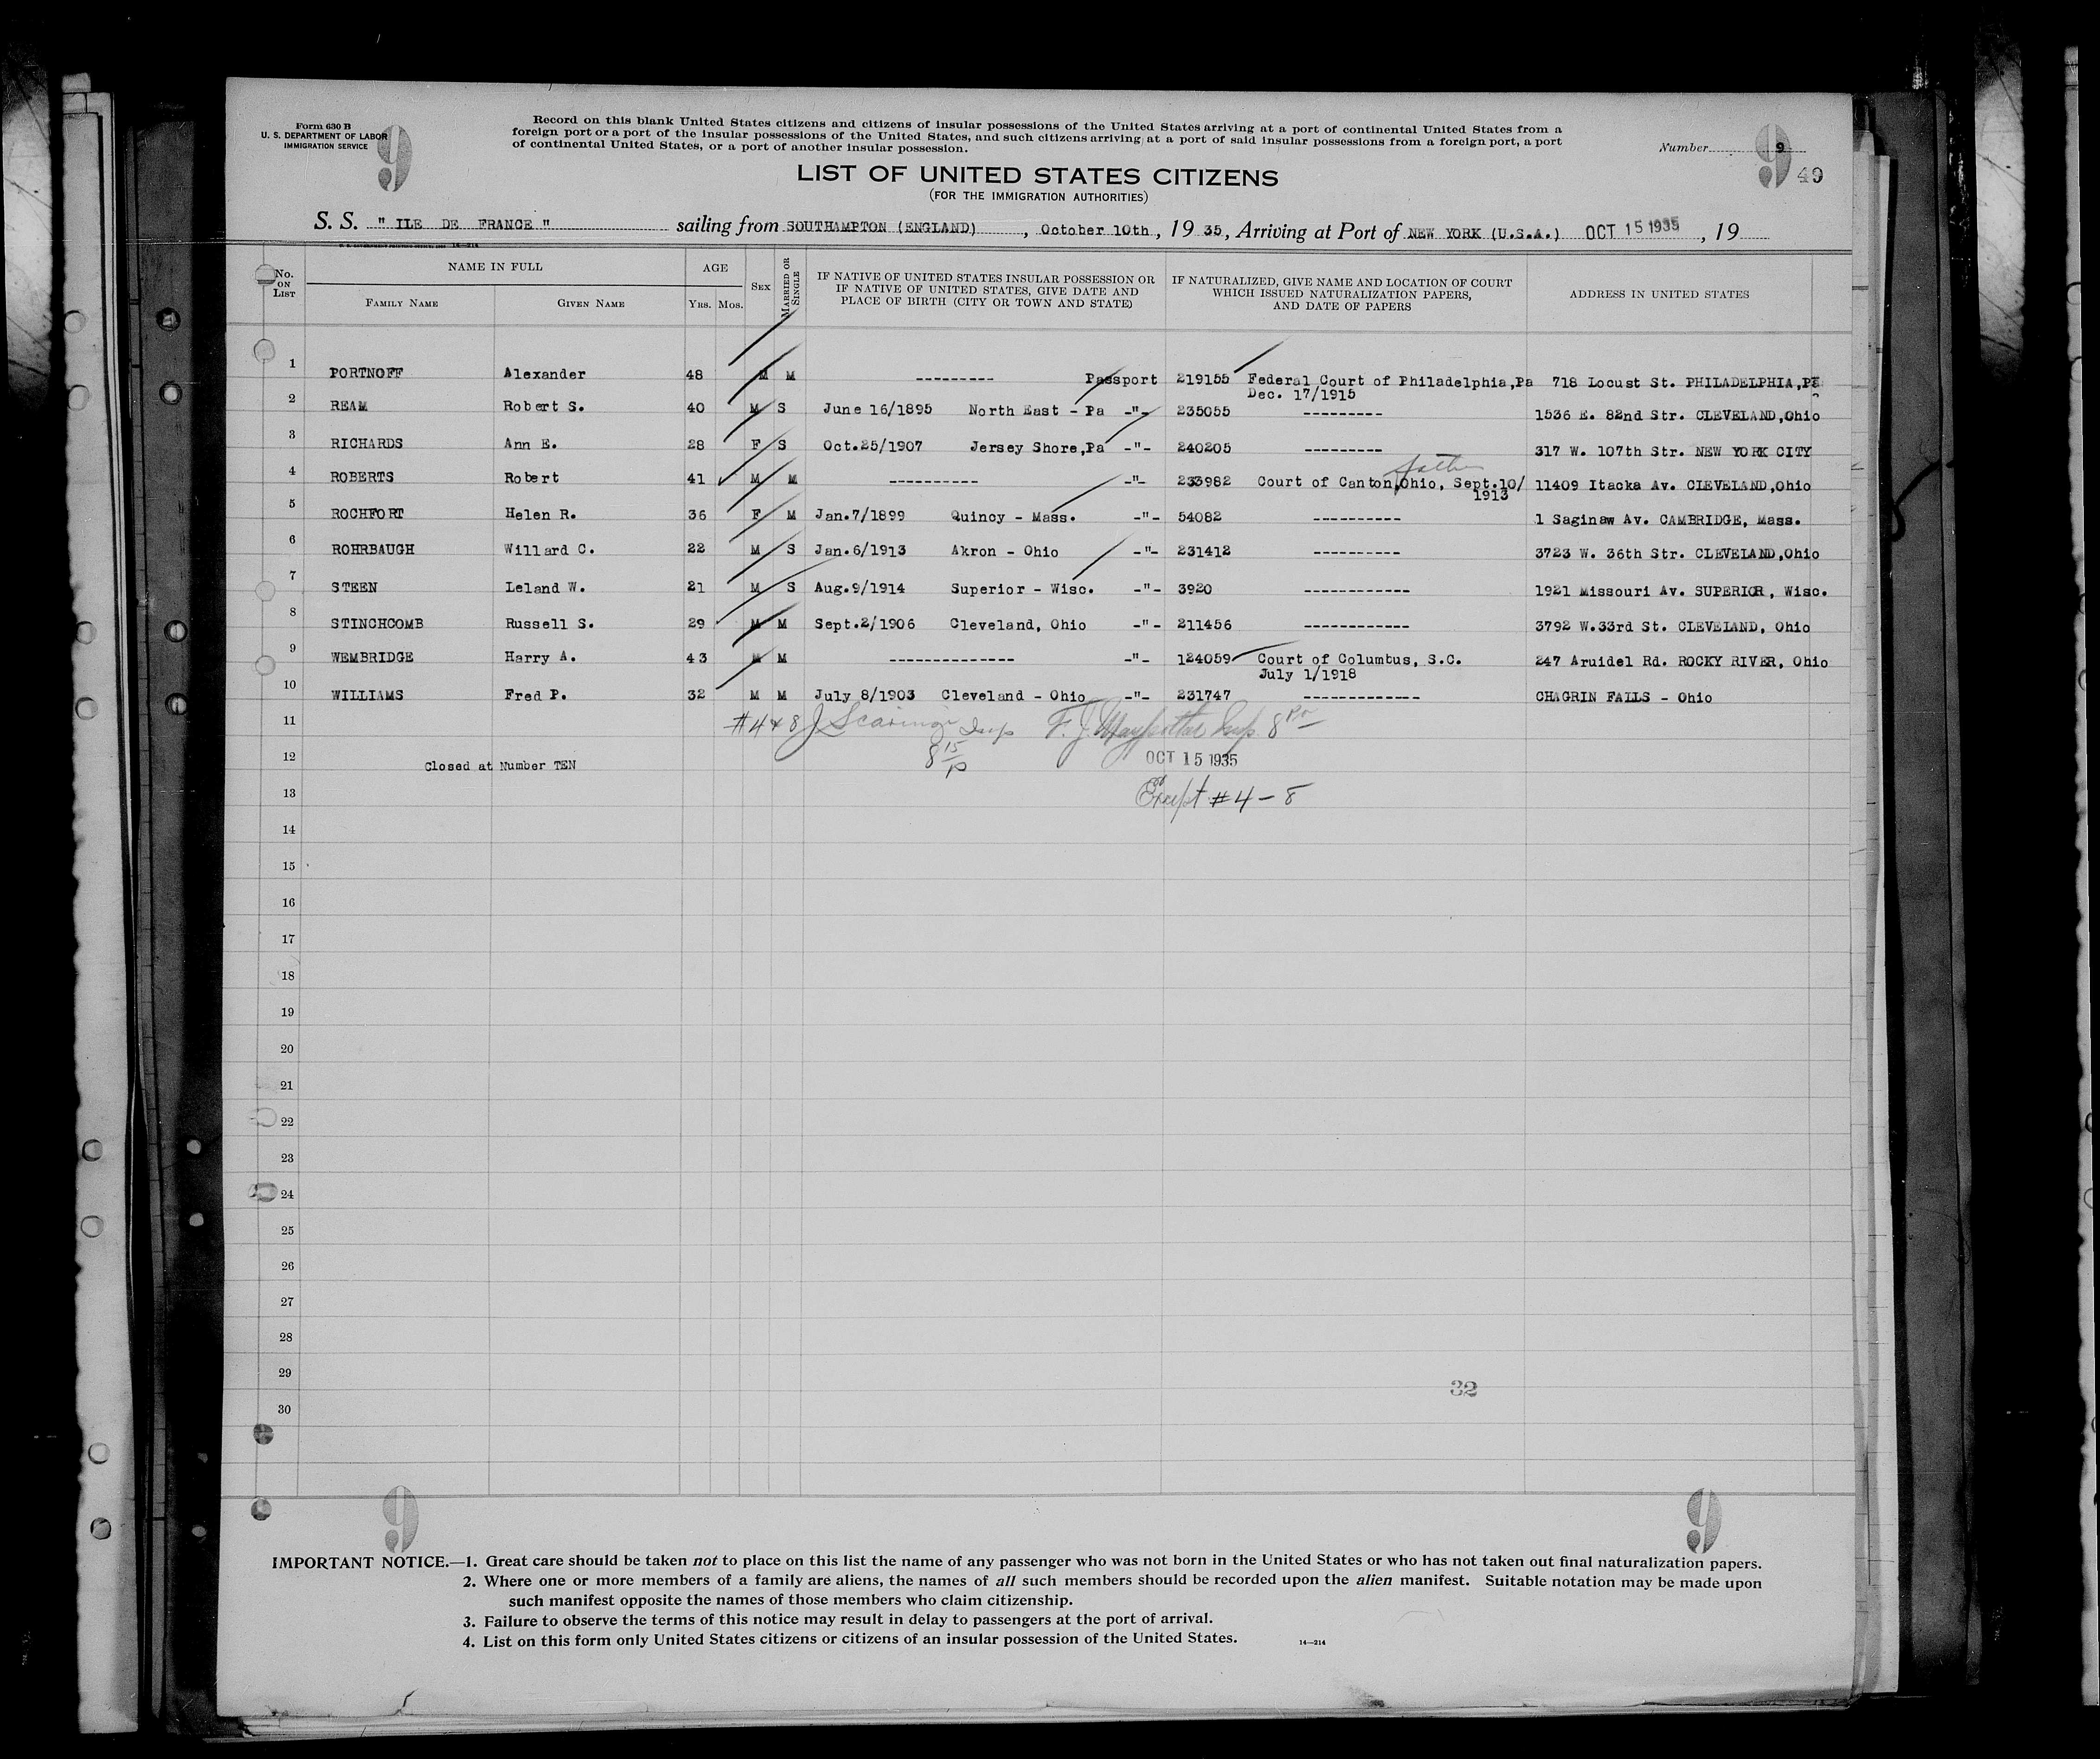 Form 630 B
U. S. DEPARTMENT OF LABOR
IMMIGRATION SERVICE
9
Record on this blank United States citizens and citizens of insular possessions of the United States arriving at a port of continental United States from a
foreign port or a port of the insular possessions of the United States, and such citizens arriving at a port of said insular possessions from a foreign port, a port
of continental United States, or a port of another insular possession.
Number 9
9
49
LIST OF UNITED STATES CITIZENS
(FOR THE IMMIGRATION AUTHORITIES)
S. S. " ILE DE FRANCE " sailing from SOUTHAMPTON (ENGLAND) , October 10th , 19 35, Arriving at Port of NEW YORK (U.S.A.) OCT 15 1935 , 19
No. ON LIST
NAME IN FULL
FAMILY NAME GIVEN NAME
AGE
YRS. MOS.
SEX
MARRIED OR SINGLE
IF NATIVE OF UNITED STATES INSULAR POSSESSION OR
IF NATIVE OF UNITED STATES, GIVE DATE AND
PLACE OF BIRTH (CITY OR TOWN AND STATE)
IF NATURALIZED, GIVE NAME AND LOCATION OF COURT
WHICH ISSUED NATURALIZATION PAPERS,
AND DATE OF PAPERS
ADDRESS IN UNITED STATES
1 PORTNOFF Alexander 48 M M --------- Passport 219155 Federal Court of Philadelphia,Pa 718 Locust St. PHILADELPHIA,Pa
Dec. 17/1915
2 REAM Robert S. 40 M S June 16/1895 North East - Pa -"- 235055 --------- 1536 E. 82nd Str. CLEVELAND,Ohio
3 RICHARDS Ann E. 28 F S Oct.25/1907 Jersey Shore,Pa -"- 240205 --------- 317 W. 107th Str. NEW YORK CITY
father
4 ROBERTS Robert 41 M M ---------- -"- 233982 Court of Canton,Ohio, Sept.10/ 11409 Itacka Av. CLEVELAND,Ohio
1913
5 ROCHFORT Helen R. 36 F M Jan.7/1899 Quincy - Mass. -"- 54082 ---------- 1 Saginaw Av. CAMBRIDGE, Mass.
6 ROHRBAUGH Willard C. 22 M S Jan.6/1913 Akron - Ohio -"- 231412 ---------- 3723 W. 36th Str. CLEVELAND,Ohio
7 STEEN Leland W. 21 M S Aug.9/1914 Superior - Wisc. -"- 3920 ------------ 1921 Missouri Av. SUPERIOR, Wisc.
8 STINCHCOMB Russell S. 29 M M Sept.2/1906 Cleveland, Ohio -"- 211456 ------------ 3792 W.33rd St. CLEVELAND, Ohio
9 WEMBRIDGE Harry A. 43 M M -------------- -"- 124059 Court of Columbus, S.C. 247 Aruidel Rd. ROCKY RIVER, Ohio
July 1/1918
10 WILLIAMS Fred P. 32 M M July 8/1903 Cleveland - Ohio -"- 231747 ------------- CHAGRIN FALLS - Ohio
11 #4 & 8 J Insp F. J. Insp. 8
12 Closed at Number TEN 8 15 OCT 15 1935
13 Except #4 - 8
14
15
16
17
18
19
20
21
22
23
24
25
26
27
28
29
32
30
9
9
IMPORTANT NOTICE.—1. Great care should be taken not to place on this list the name of any passenger who was not born in the United States or who has not taken out final naturalization papers.
2. Where one or more members of a family are aliens, the names of all such members should be recorded upon the alien manifest. Suitable notation may be made upon
such manifest opposite the names of those members who claim citizenship.
3. Failure to observe the terms of this notice may result in delay to passengers at the port of arrival.
4. List on this form only United States citizens or citizens of an insular possession of the United States.
14—214